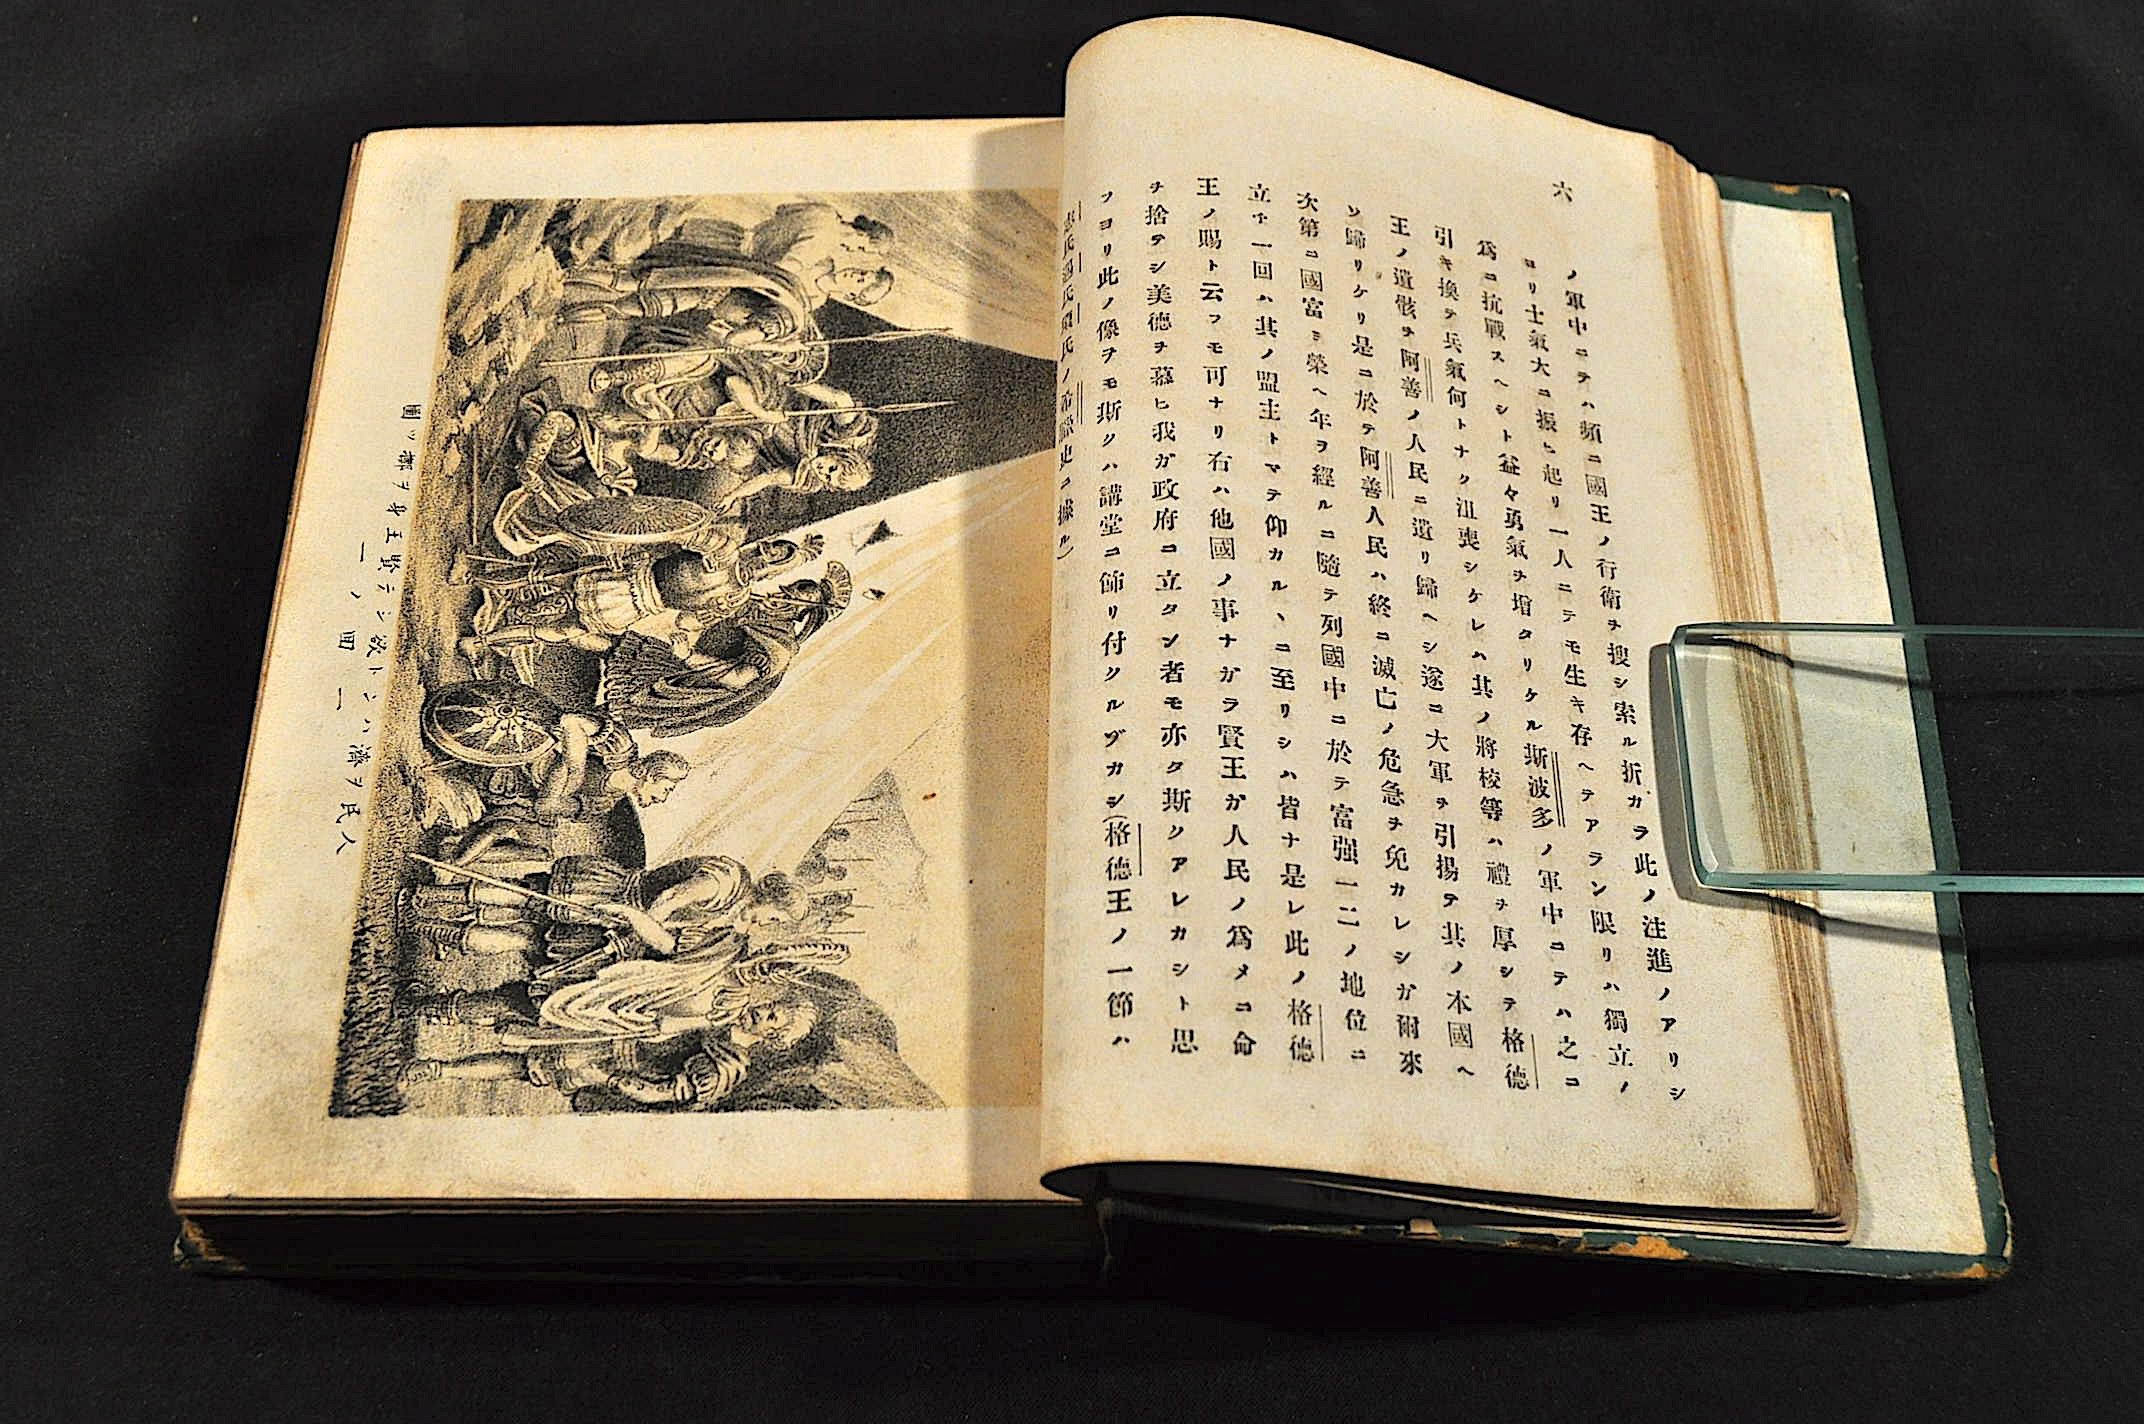 六
ノ軍中ニテハ頻ニ國王ノ行衛ヲ搜シ索ル折カラ此ノ注進ノアリシ
ヨリ士氣大ニ振ヒ起リ一人ニテモ生キ存ヘテアラン限リハ獨立ノ
爲ニ抗戰スヘシト益々勇氣ヲ增タリケル斯波多ノ軍中ニテハ之ニ
引キ換テ兵氣何トナク沮喪シケレハ其ノ將校等ハ禮ヲ厚シテ格德
王ノ遺骸ヲ阿善ノ人民ニ送リ歸ヘシ遂ニ大軍ヲ引揚テ其ノ本國ヘ
ソ歸リケリ是ニ於テ阿善人民ハ終ニ滅亡ノ危急ヲ免カレシガ爾來
次第ニ國富ミ榮ヘ年ヲ經ルニ隨テ列國中ニ於テ富强一二ノ地位ニ
立チ一回ハ其ノ盟主トマテ仰カルヽニ至リシハ皆ナ是レ此ノ格德
王ノ賜ト云フモ可ナリ右ハ他國ノ事ナガラ賢王カ人民ノ爲メニ命
ヲ捨テシ美德ヲ慕ヒ我ガ政府ニ立タン者モ亦タ斯クアレカシト思
フヨリ此ノ像ヲモ斯クハ講堂ニ飾リ付クルゾカシ(格德王ノ一節ハ
氏ノ史ニ據ル)
一ノ四一
人民ヲ濟ハントシテ賢王身ヲ擲ツ圖